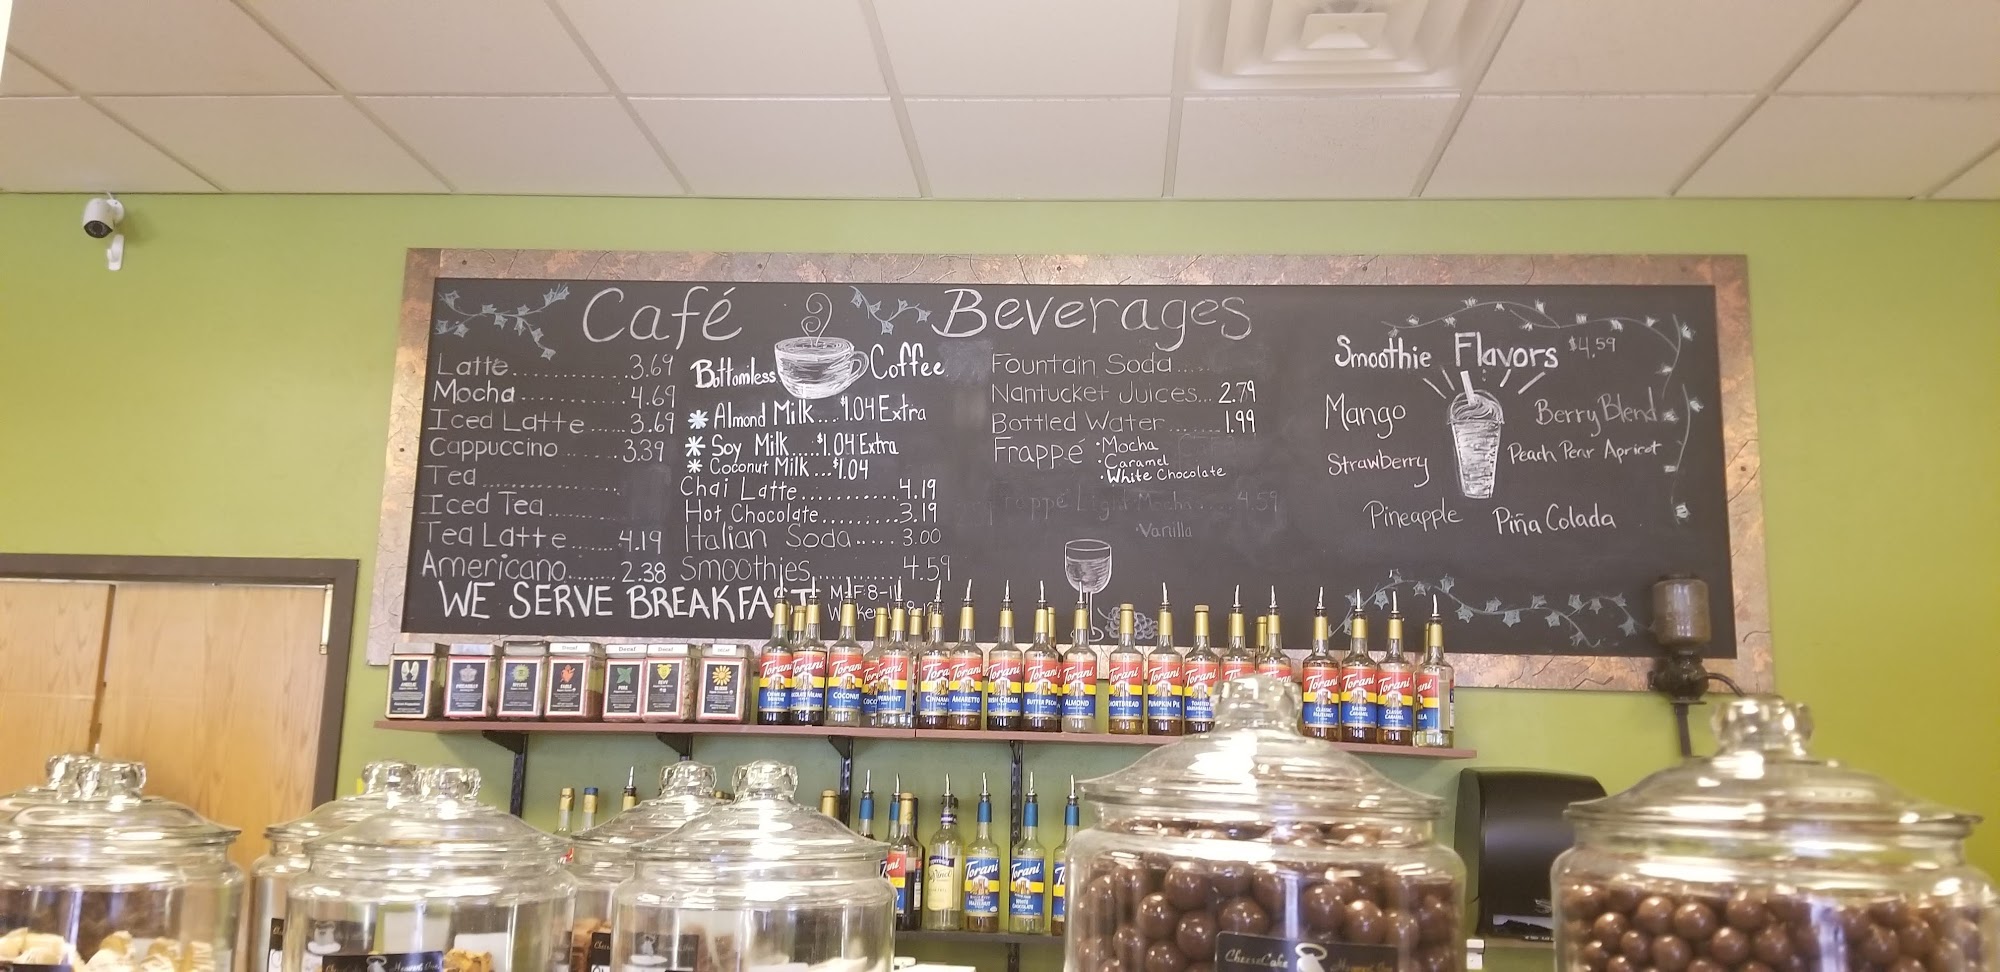 Café Beverages
Latte..............3.69
Mocha............4.69
Iced Latte......3.69
Cappuccino......3.39
Tea
Iced Tea
Tea Latte.......4.19
Americano........2.38
WE SERVE BREAKFAST
M-F 8-11
Bottomless Coffee
Almond Milk...$1.04 Extra
Soy Milk.....$1.04 Extra
Coconut Milk...$1.04
Chai Latte..........4.19
Hot Chocolate........3.19
Italian Soda.....3.00
Smoothies..........4.59
Fountain Soda.....
Nantucket Juices...2.79
Bottled Water........1.99
Frappé
·Mocha
·Caramel
·White Chocolate
Frappé Light Mocha.....4.59
·Vanilla
Smoothie Flavors $4.59
Mango
Berry Blend
Strawberry
Peach Pear Apricot
Pineapple
Piña Colada
Decaf
Decaf
Decaf
Torani
COCONUT
Torani
AMARETTO
Torani
Torani
BUTTER PECAN
Torani
ALMOND
Torani
Torani
PUMPKIN PIE
Torani
Torani
CLASSIC HAZELNUT
Torani
SALTED CARAMEL
Torani
CLASSIC CARAMEL
Torani
Torani
WHITE CHOCOLATE
CheeseCake